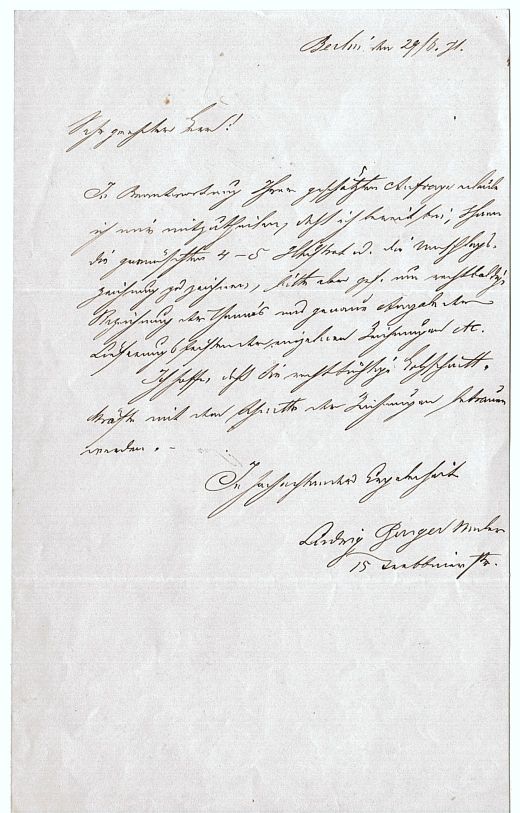 Berlin den 29/8. 71.
Sehr geehrter Herr!
In Beantwortung Ihrer geschätzten Anfrage erlaube
ich mir mitzutheilen, daß ich bereit bin, Ihnen
die gewünschten 4–5 Illustrat. u. die Umschlag-
zeichnung zu zeichnen, bitte aber gef. um recht baldige
Bezeichnung der Themas und genaue Angabe der
Lieferungszeiten der einzelnen Zeichnungen etc.
Ich hoffe, daß Sie recht tüchtige Holzschnitt-
kräfte mit dem Schnitte der Zeichnungen betrauen
werden. –
In hochachtender Ergebenheit
Ludwig Burger Maler
15